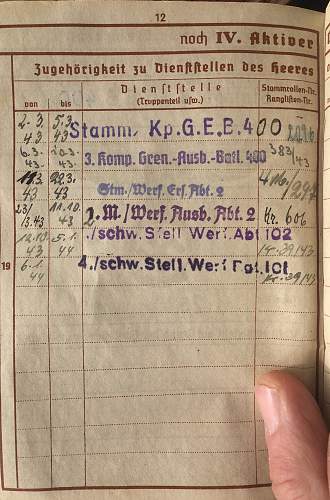 12
noch IV. Aktiver
Zugehörigkeit zu Dienststellen des Heeres
von bis Dienststelle (Truppenteil usw.) Stammrollen-Nr. Ranglisten-Nr.
2.3. 43 5.3. 43 Stamm. Kp. G.E.B. 400
6.3. 43. 10.3. 43. 3. Komp. Gren.-Ausb.-Batl. 400 383/43
11.3. 43 22.3. 43 Stm./Werf. Ers. Abt. 2 416/297
23/3.43 11.10. 43 2. M/Werf. Ausb. Abt. 2 Nr. 606
12.10. 43 5.1. 44 ./schw. Stell Werf. Abt 102 39/43
19 6.1. 44 4./schw. Stell. Werf 101 39/43